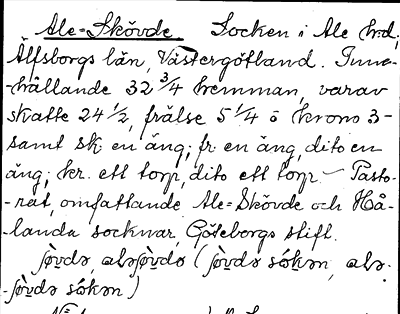 Ale=Skövde. Socken i Ale hd,
Älfsborgs län, Västergötland. Inne-
-hållande 32 3/4 hemman, varav
skatte 24 1/2, frälse 5 1/4 o krono 3-
samt sk. en äng; fr. en äng, dito en
äng; kr. ett torp, dito ett torp. - Pasto-
-rat, omfattande Ale=Skövde och Hå-
-landa socknar, Göteborgs stift.